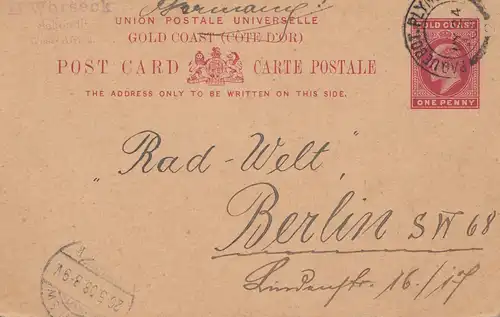 Germany!
UNION POSTALE UNIVERSELLE
GOLD COAST (CÔTE D'OR)
POST CARD CARTE POSTALE
THE ADDRESS ONLY TO BE WRITTEN ON THIS SIDE.
GOLD COAST
ONE PENNY
PAQUEBOT.
„Rad-Welt"
Berlin SW 68
Lindenstr. 16/17